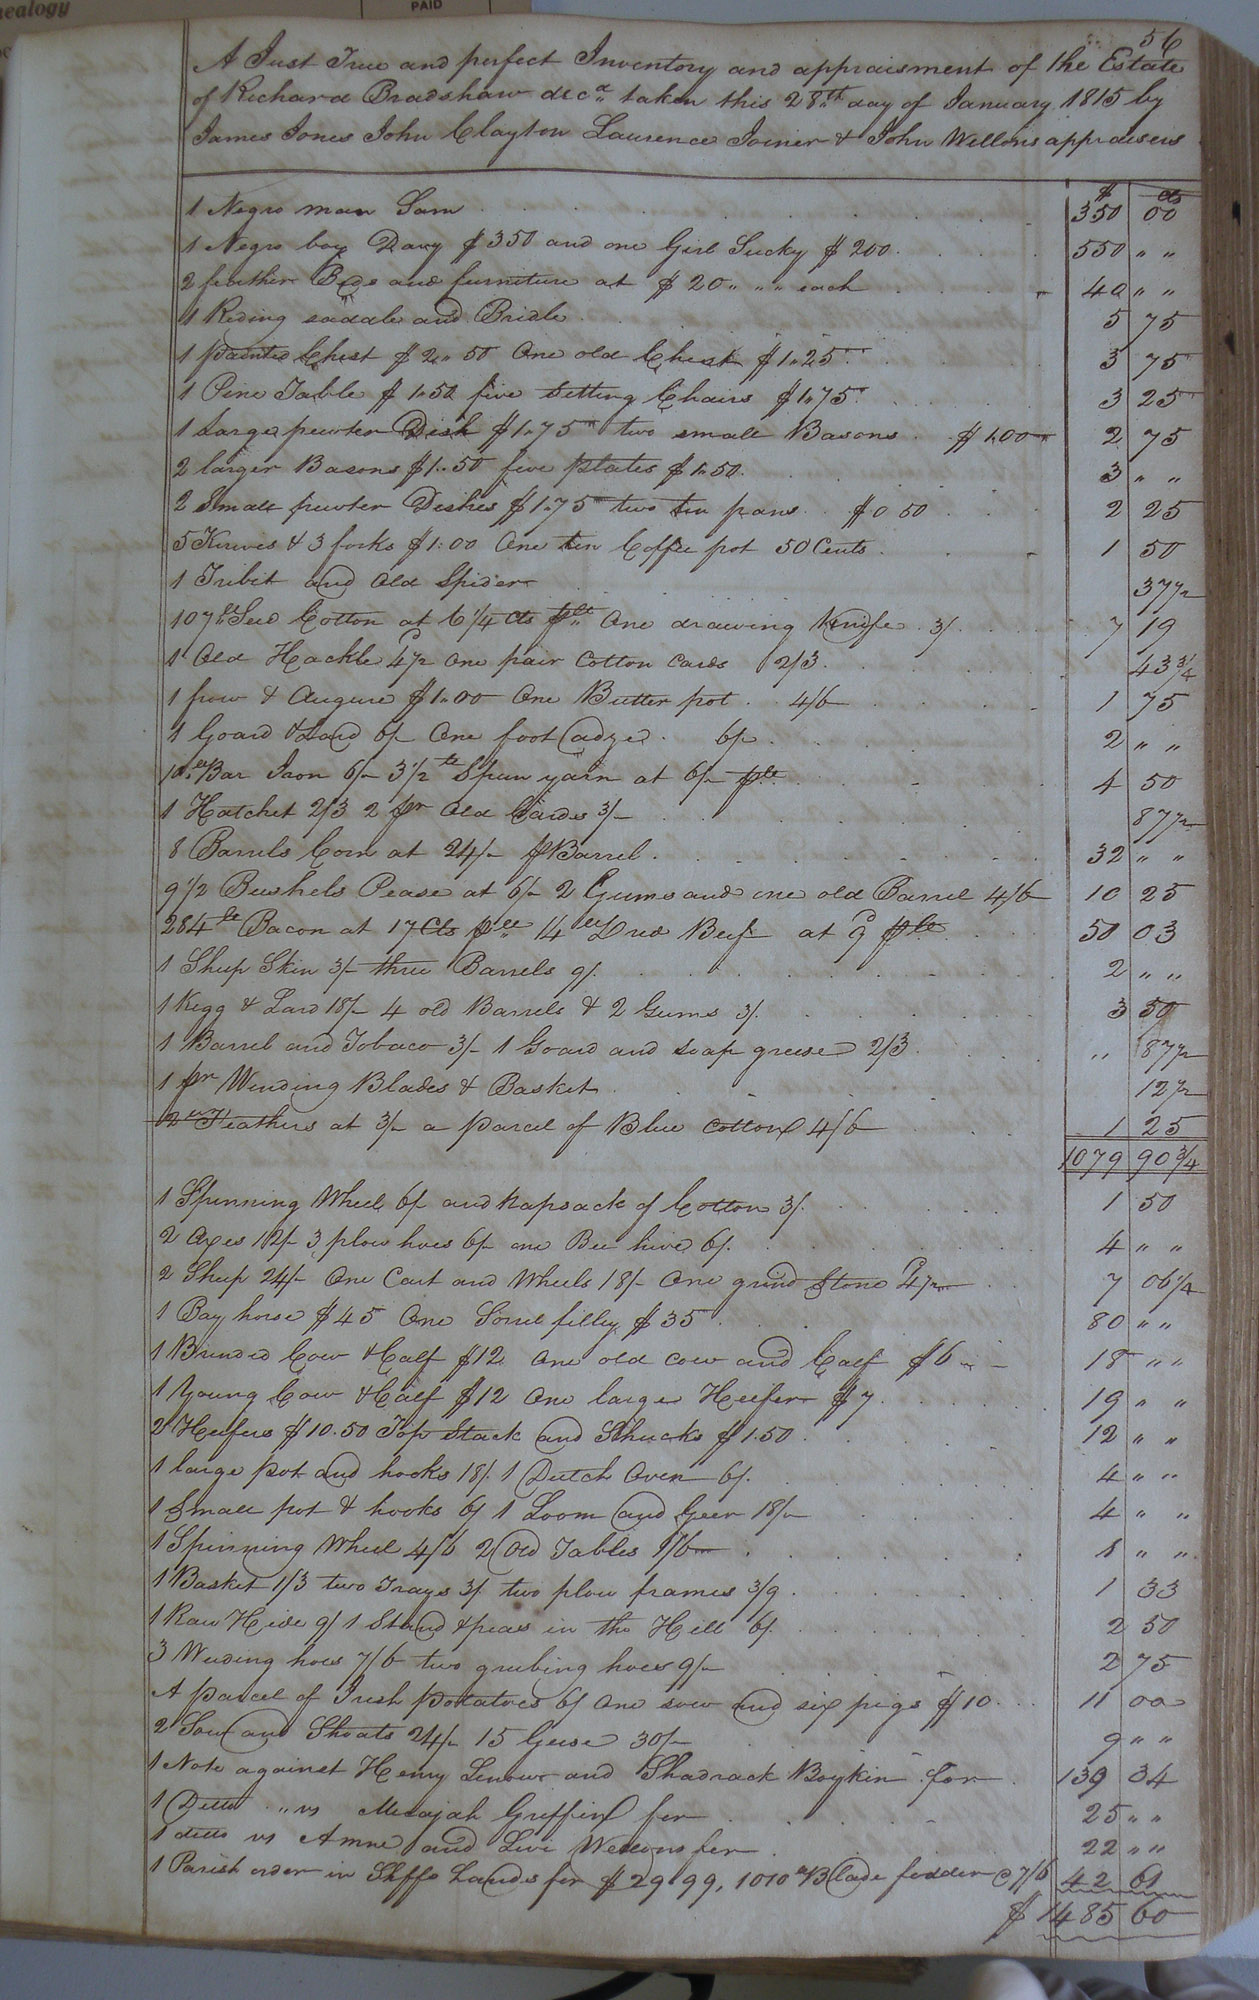 ealogy
PAID
56
A Just True and perfect Inventory and appraisment of the Estate
of Richard Bradshaw decd taken this 28th day of January 1815 by
James Jones John Clayton Laurence Joiner & John Wellons appraisers
$ cts
1 Negro man Sam 350 00
1 Negro boy Davy $350 and one Girl Sucky $200 550 " "
2 feather Beds and furniture at $20 " " each 40 " "
1 Riding saddle and Bridle 5 75
1 painted Chest $2.50 One old Chest $1.25 3 75
1 Pine Table $1.50 five Setting Chairs $1.75 3 25
1 Large pewter Dish $1.75 two small Basons $1.00 2 75
2 larger Basons $1.50 five plates $1.50 3 " "
2 Small pewter Dishes $1.75 two tin pans $0 50 2 25
5 Knives & 3 forks $1.00 One tin Coffee pot 50 Cents 1 50
1 Tribit and Old Spider 37 1/2
107 lb Seed Cotton at 6 1/4 cts plb One drawing Knife 3/ 7 19
1 Old Hackle 4 1/2 One pair Cotton Cards 2/3 43 3/4
1 frow & Augure $1.00 One Butter pot 4/6 1 75
1 Goard & Lard 6/ One foot adze 6/ 2 " "
Bar Iron 6/ 3 1/2 lb Spun yarn at 6/ plb 4 50
1 Hatchet 2/3 2 pr Old Cards 3/ 87 1/2
8 Barrels Corn at 24/ p Barrel 32 " "
9 1/2 Bushels Pease at 6/ 2 Gums and one old Barrel 4/6 10 25
284 lb Bacon at 17 Cts plb 14 lb Dried Beef at 9d plb 50 03
1 Sheep Skin 3/ three Barrels 9/ 2 " "
1 Kegg & Lard 18/ 4 old Barrels & 2 Gums 3/ 3 50
1 Barrel and Tobaco 3/ 1 Goard and soap grease 2/3 " 87 1/2
1 pr Winding Blades & Basket 12 1/2
2 lb Feathers at 3/ a parcel of Blue Cotton 4/6 1 25
1079 90 3/4
1 Spinning Wheel 6/ and Napsack of Cotton 3/ 1 50
2 Axes 12/ 3 plow hoes 6/ one Bee hive 6/ 4 " "
2 Sheep 24/ One Cart and Wheels 18/ One grind Stone 4 1/2 7 06 1/4
1 Bay horse $45 One Sorrel filley $35 80 " "
1 Brinded Cow & Calf $12 One old Cow and Calf $6 18 " "
1 Young Cow & Calf $12 One large Heifer $7 19 " "
2 Heifers $10.50 Top Stack and Shucks $1.50 12 " "
1 large pot and hooks 18/ 1 Dutch Oven 6/ 4 " "
1 Small pot & hooks 6/ 1 Loom and Geer 18/ 4 " "
1 Spinning Wheel 4/6 2 Old Tables 1/6 1 " "
1 Basket 1/3 two Trays 3/ two plow frames 3/9 1 33
1 Raw Hide 9/ 1 Stand & peas in the Hill 6/ 2 50
3 Weeding hoes 7/6 two grubing hoes 9/ 2 75
A parcel of Irish potatoes 6/ One sow and six pigs $10 11 00
2 Sows and Shoats 24/ 15 Geese 30/ 9 " "
1 Note against Henry Lenow and Shadrack Boykin for 139 34
1 Ditto " vs Micajah Griffin for 25 " "
1 ditto vs and Levi Wellons for 22 " "
1 Parish order in Shffs hands for $29.99, 1010 lb Blade fodder @ 7/6 42 61
$1485 60